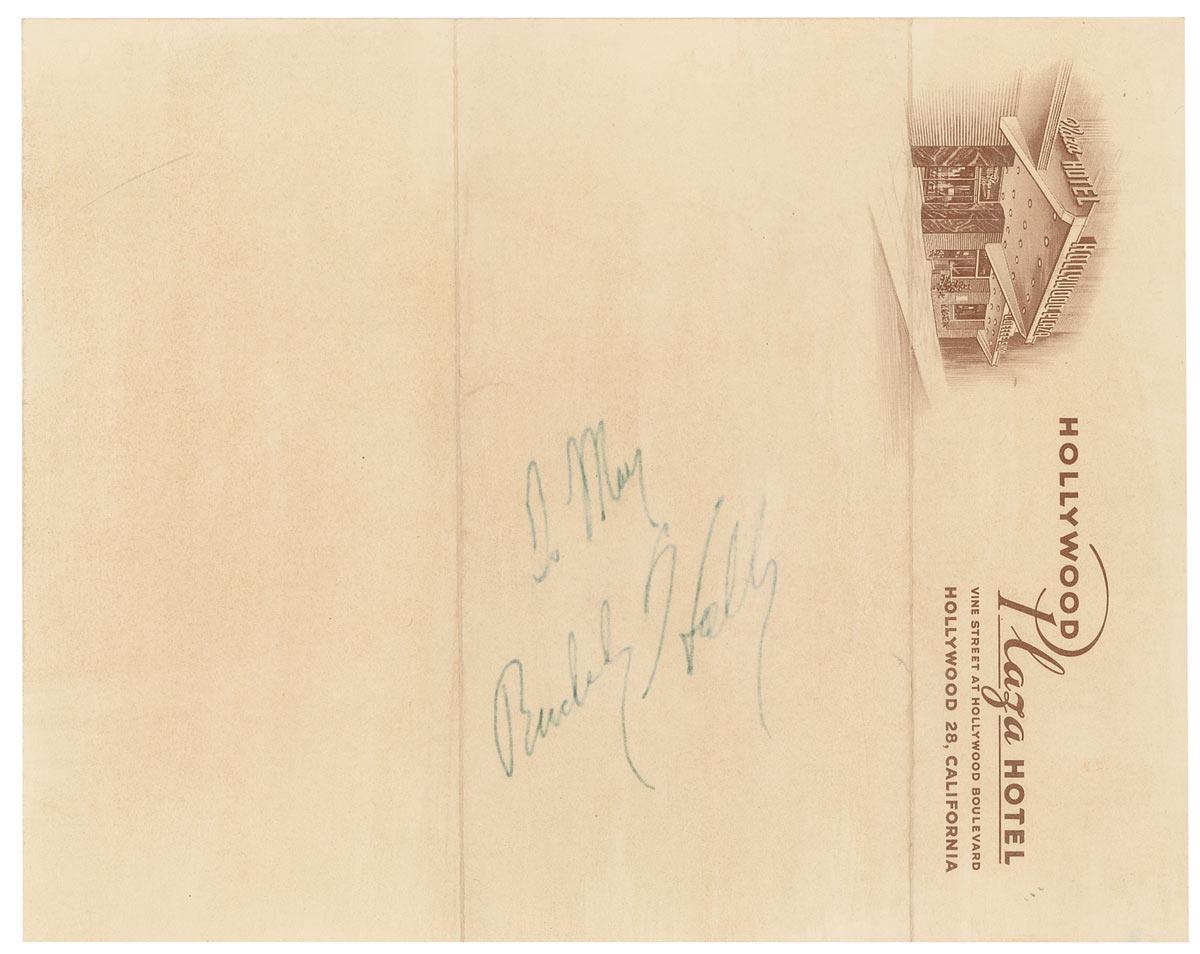 Plaza HOTEL
HOLLYWOOD PLAZA
HOLLYWOOD
Plaza HOTEL
VINE STREET AT HOLLYWOOD BOULEVARD
HOLLYWOOD 28, CALIFORNIA
To May
Buddy Holly